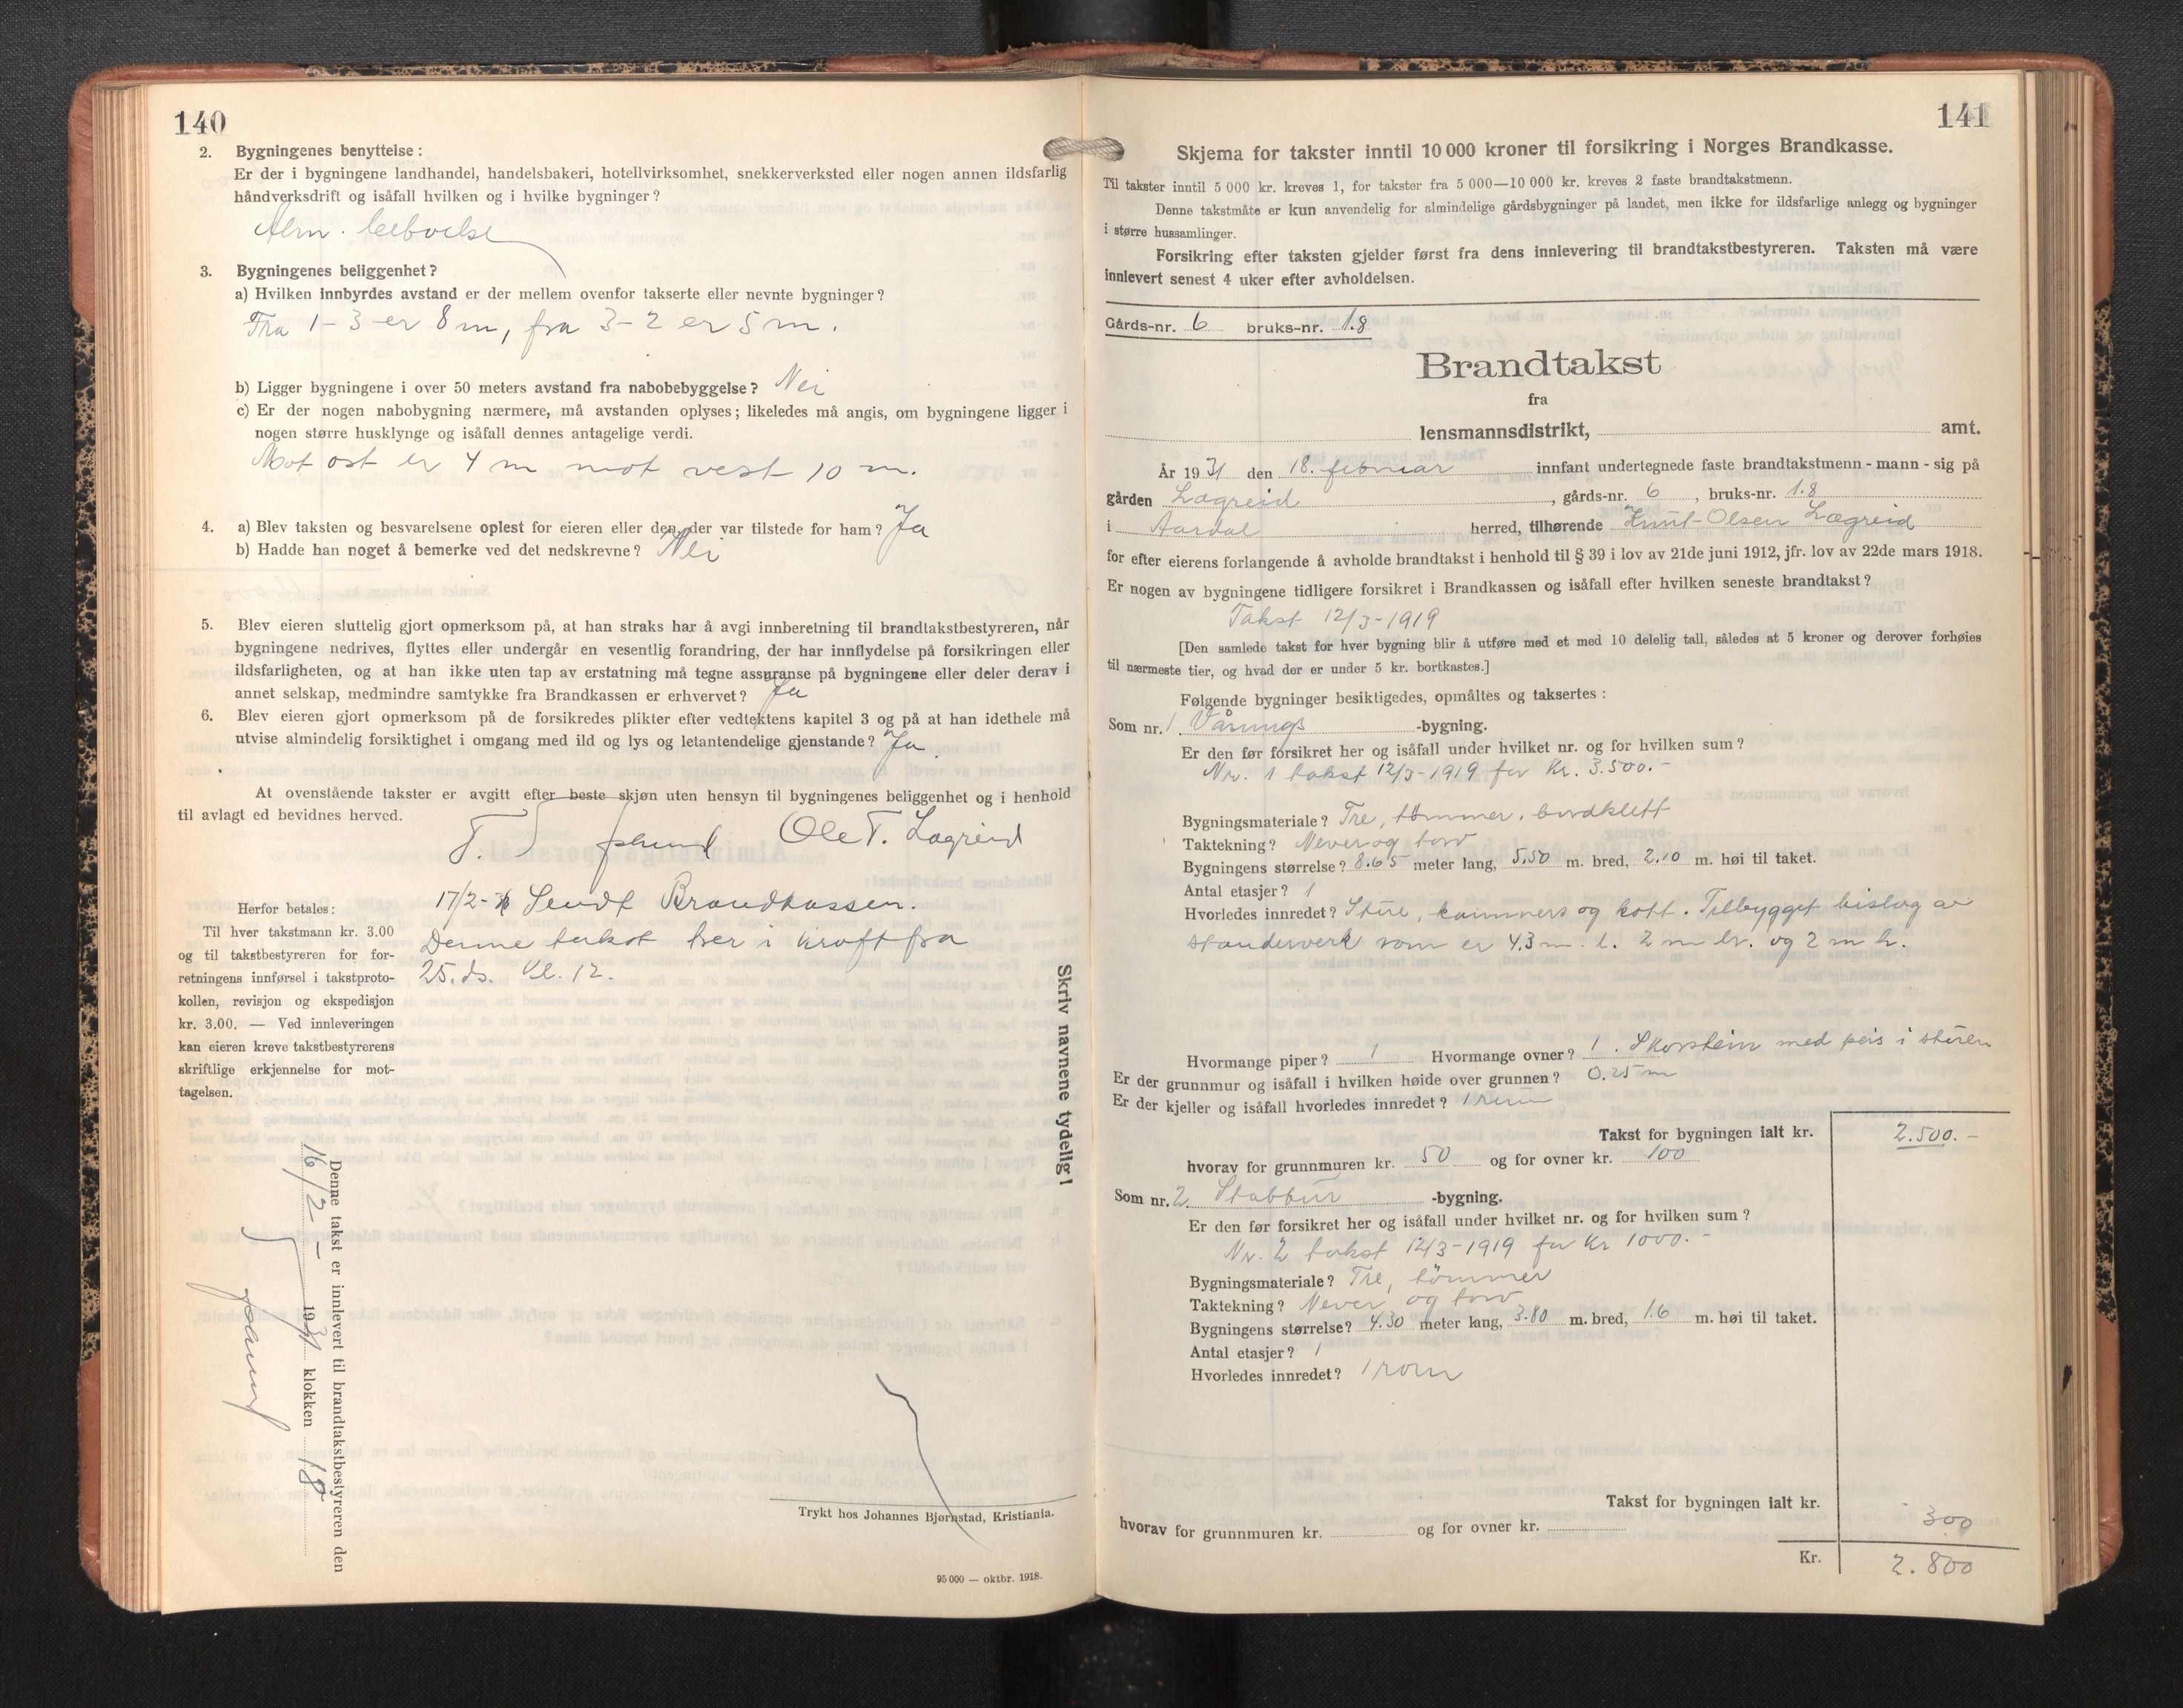 140
2. Bygningenes benyttelse:
Er der i bygningene landhandel, handelsbakeri, hotellvirksomhet, snekkerverksted eller nogen annen ildsfarlig
håndverksdrift og isåfall hvilken og i hvilke bygninger?
Alm. beboelse
3. Bygningenes beliggenhet?
a) Hvilken innbyrdes avstand er der mellem ovenfor takserte eller nevnte bygninger?
Fra 1-3 er 8 m, fra 3-2 er 5 m.
b) Ligger bygningene i over 50 meters avstand fra nabobebyggelse? Nei
c) Er der nogen nabobygning nærmere, må avstanden oplyses; likeledes må angis, om bygningene ligger i
nogen større husklynge og isåfall dennes antagelige verdi.
Mot ost er 4 m mot vest 10 m.
4. a) Blev taksten og besvarelsene oplest for eieren eller den, der var tilstede for ham? Ja
b) Hadde han noget å bemerke ved det nedskrevne? Nei
5. Blev eieren sluttelig gjort opmerksom på, at han straks har å avgi innberetning til brandtakstbestyreren, når
bygningene nedrives, flyttes eller undergår en vesentlig forandring, der har innflydelse på forsikringen eller
ildsfarligheten, og at han ikke uten tap av erstatning må tegne assuranse på bygningene eller deler derav i
annet selskap, medmindre samtykke fra Brandkassen er erhvervet? Ja
6. Blev eieren gjort opmerksom på de forsikredes plikter efter vedtektens kapitel 3 og på at han idethele må
utvise almindelig forsiktighet i omgang med ild og lys og letantendelige gjenstande? Ja
At ovenstående takster er avgitt efter beste skjøn uten hensyn til bygningenes beliggenhet og i henhold
til avlagt ed bevidnes herved.
Ole T. Lægreid
17/2- Sendt Brandkassen.
Denne takst trer i kraft fra
25. ds. kl. 12.
Herfor betales:
Til hver takstmann kr. 3.00
og til takstbestyreren for for-
retningens innførsel i takstproto-
kollen, revisjon og ekspedisjon
kr. 3.00. — Ved innleveringen
kan eieren kreve takstbestyrerens
skriftlige erkjennelse for mot-
tagelsen.
Skriv navnene tydelig!
Denne takst er innlevert til brandtakstbestyreren den
16/2- 1931 klokken 18
Trykt hos Johannes Bjørnstad, Kristiania.
95 000 — oktbr. 1918.
141
Skjema for takster inntil 10 000 kroner til forsikring i Norges Brandkasse.
Til takster inntil 5 000 kr. kreves 1, for takster fra 5 000—10 000 kr. kreves 2 faste brandtakstmenn.
Denne takstmåte er kun anvendelig for almindelige gårdsbygninger på landet, men ikke for ildsfarlige anlegg og bygninger
i større hussamlinger.
Forsikring efter taksten gjelder først fra dens innlevering til brandtakstbestyreren. Taksten må være
innlevert senest 4 uker efter avholdelsen.
Gårds-nr. 6 bruks-nr. 1.8
Brandtakst
fra
lensmannsdistrikt, amt.
År 1931 den 18. februar innfant undertegnede faste brandtakstmenn - mann - sig på
gården Lægreid, gårds-nr. 6, bruks-nr. 1.8
i Aardal herred, tilhørende Knut Olsen Lægreid
for efter eierens forlangende å avholde brandtakst i henhold til § 39 i lov av 21de juni 1912, jfr. lov av 22de mars 1918.
Er nogen av bygningene tidligere forsikret i Brandkassen og isåfall efter hvilken seneste brandtakst?
Takst 12/3-1919
[Den samlede takst for hver bygning blir å utføre med et med 10 delelig tall, således at 5 kroner og derover forhøies
til nærmeste tier, og hvad der er under 5 kr. bortkastes.]
Følgende bygninger besiktigedes, opmåltes og taksertes:
Som nr. 1 Vånings -bygning.
Er den før forsikret her og isåfall under hvilket nr. og for hvilken sum?
Nr. 1 takst 12/3-1919 for Kr. 3.500.-
Bygningsmateriale? Tre, tømmer, bordklett
Taktekning? Never og torv
Bygningens størrelse? 8.65 meter lang, 5.50 m. bred, 2.10 m. høi til taket.
Antal etasjer? 1
Hvorledes innredet? Stue, kammers og kott. Tilbygget bislag av
standerverk som er 4.3 m. l. 2 m br. og 2 m h.
Hvormange piper? 1 Hvormange ovner? 1. Skorstein med peis i stuen
Er der grunnmur og isåfall i hvilken høide over grunnen? 0.25 m
Er der kjeller og isåfall hvorledes innredet? 1 rum
Takst for bygningen ialt kr. 2.500.-
hvorav for grunnmuren kr. 50 og for ovner kr. 100
Som nr. 2 Stabbur -bygning.
Er den før forsikret her og isåfall under hvilket nr. og for hvilken sum?
Nr. 2 takst 12/3-1919 for Kr 1000.-
Bygningsmateriale? Tre, tömmer
Taktekning? Never og torv
Bygningens størrelse? 4.30 meter lang, 3.80 m. bred, 1.6 m. høi til taket.
Antal etasjer? 1
Hvorledes innredet? 1 rom
Takst for bygningen ialt kr. 300
hvorav for grunnmuren kr. og for ovner kr.
Kr. 2.800